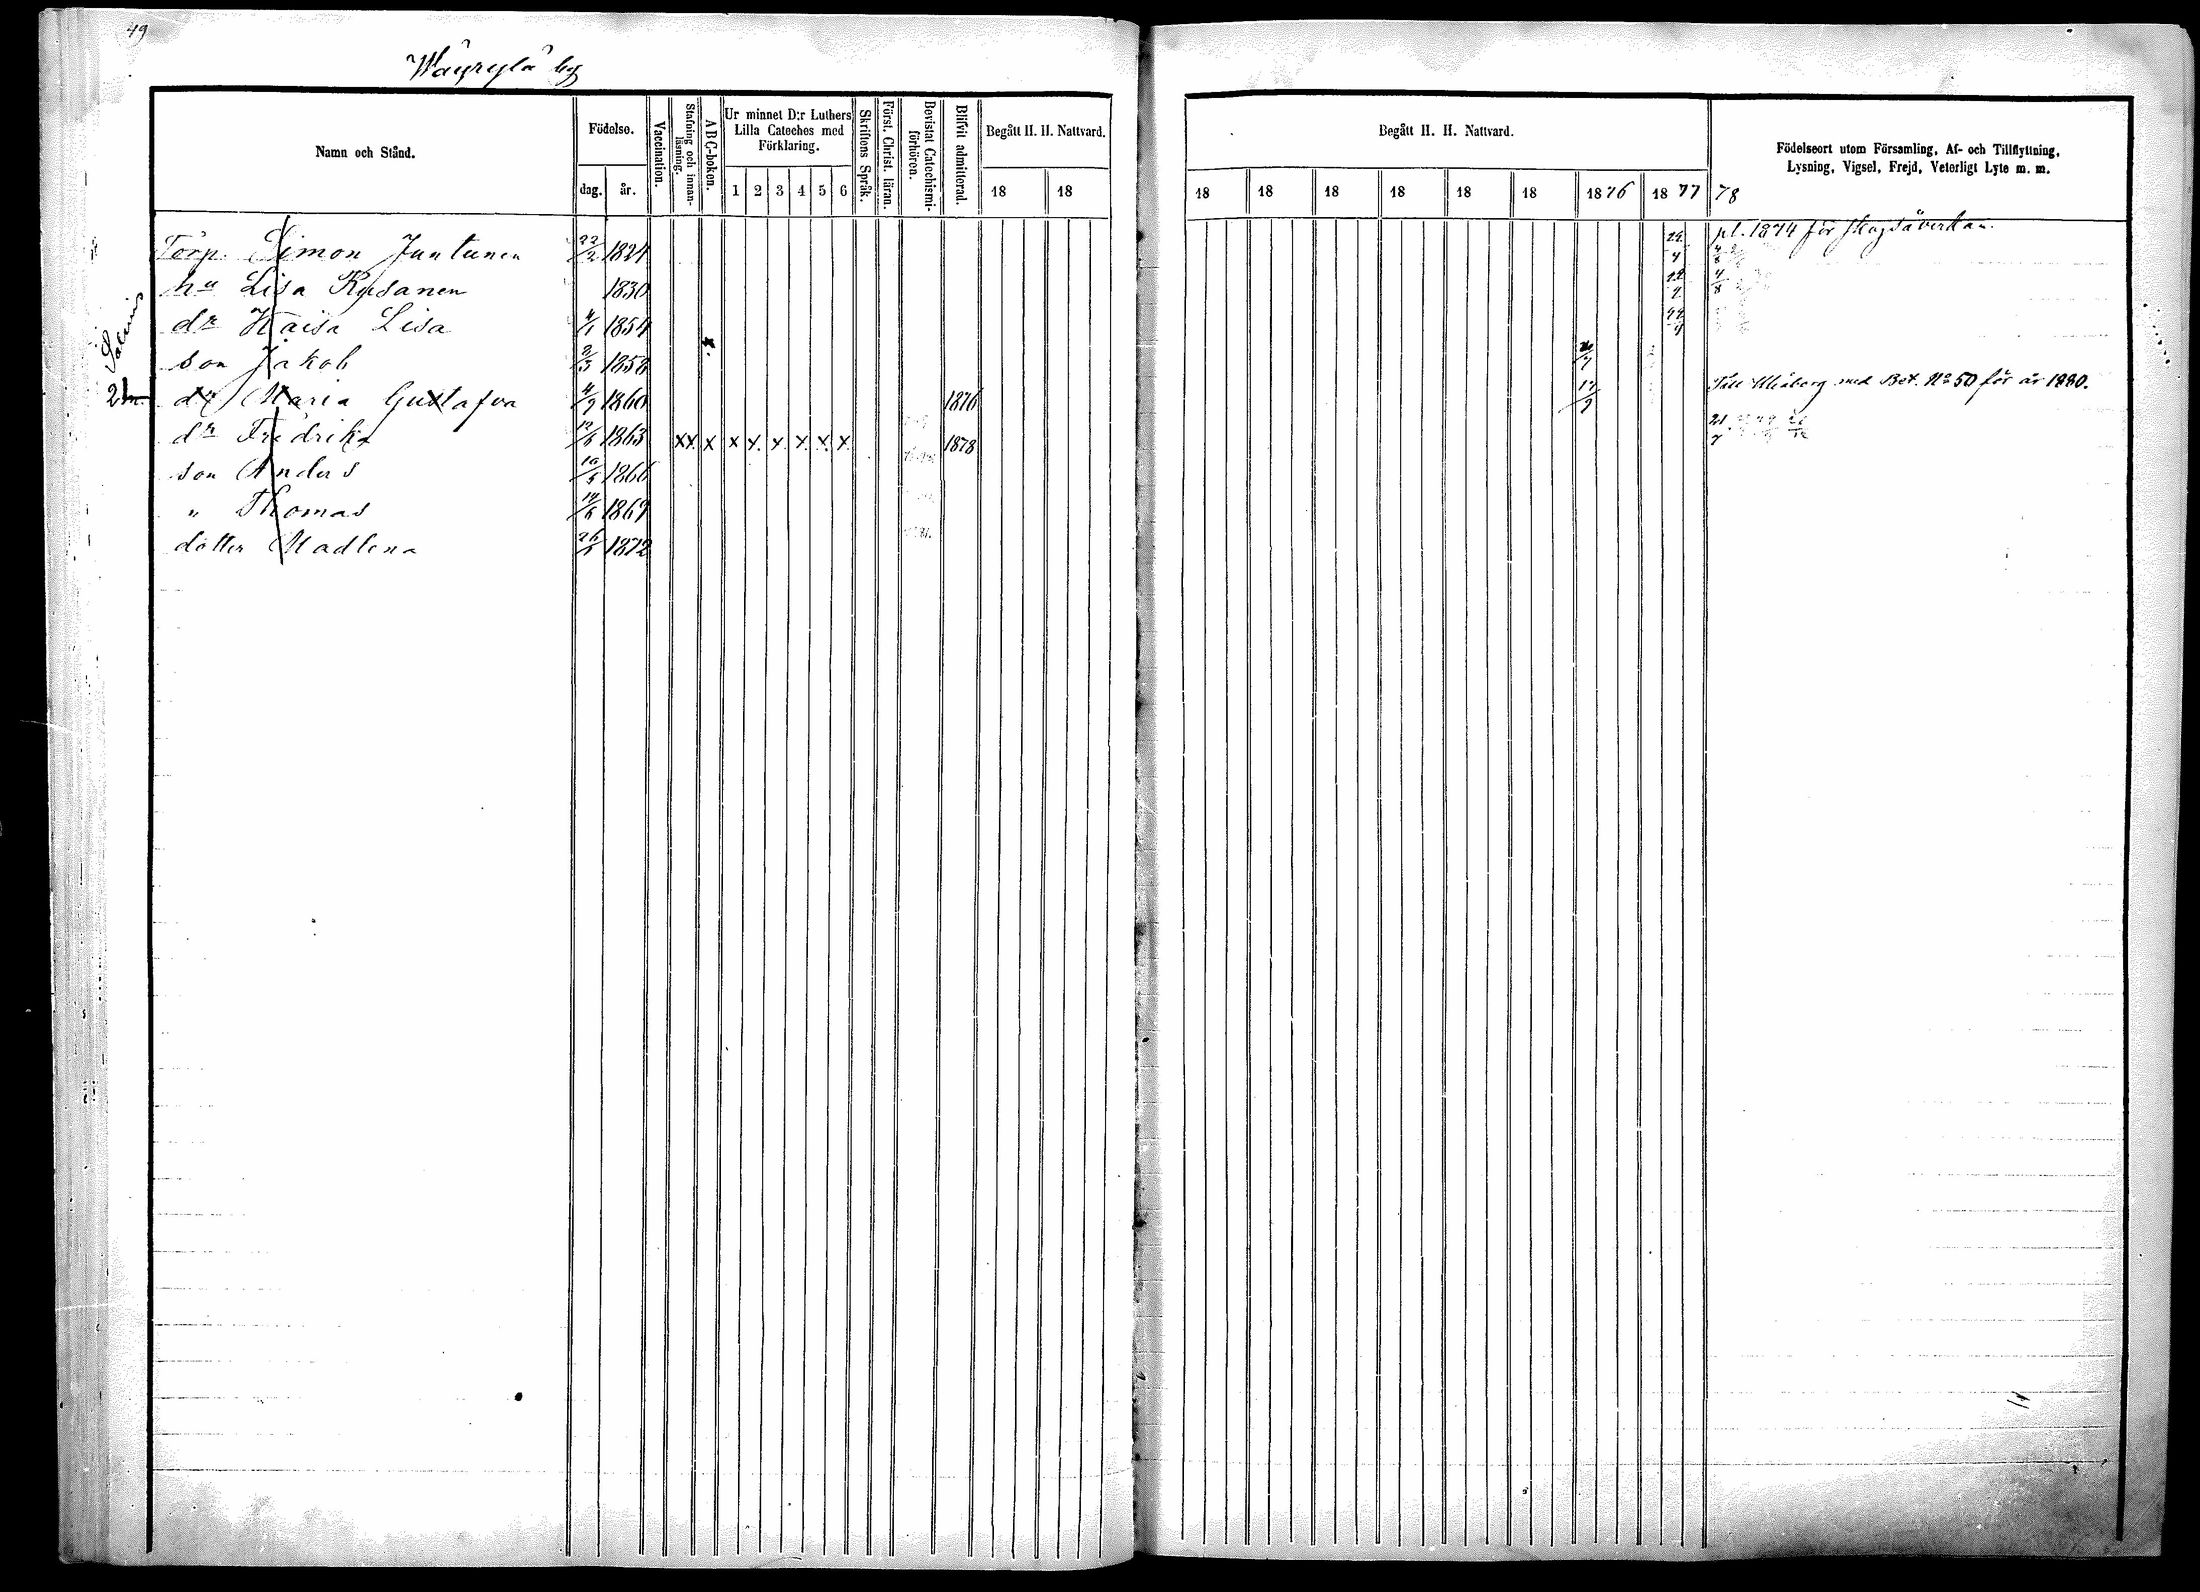 49
Wäyrylä by
Namn och Stånd.
Födelse.
dag. år.
Vaccination.
Stafning och innanläsning.
ABC-boken.
Ur minnet D:r Luthers Lilla Cateches med Förklaring.
1 2 3 4 5 6
Skriftens Språk.
Först. Christ. läran.
Bevistat Catechismiförhören.
Blifvit admitterad.
Begått H. H. Nattvard.
18 18
Begått H. H. Nattvard.
18 18 18 18 18 18 1876 1877 78
Födelseort utom Församling, Af- och Tillflyttning,
Lysning, Vigsel, Frejd, Veterligt Lyte m. m.
Torp. Simon Juntunen 22/2 1824 pl. 1874 för skogsåverkan.
hu Lisa Rysanen 1830 4/8
dr Kaisa Lisa 4/1 1854
son Jakob 2/3 1858
dr Maria Gustafva 4/9 1860 1876 17/9 Till Uleåborg med Bet. No 50 för år 1880.
dr Fredrika 12/6 1863 x x x x x x x x x 1878
son Anders 10/5 1866
" Thomas 14/6 1869
dotter Madlena 26/5 1872